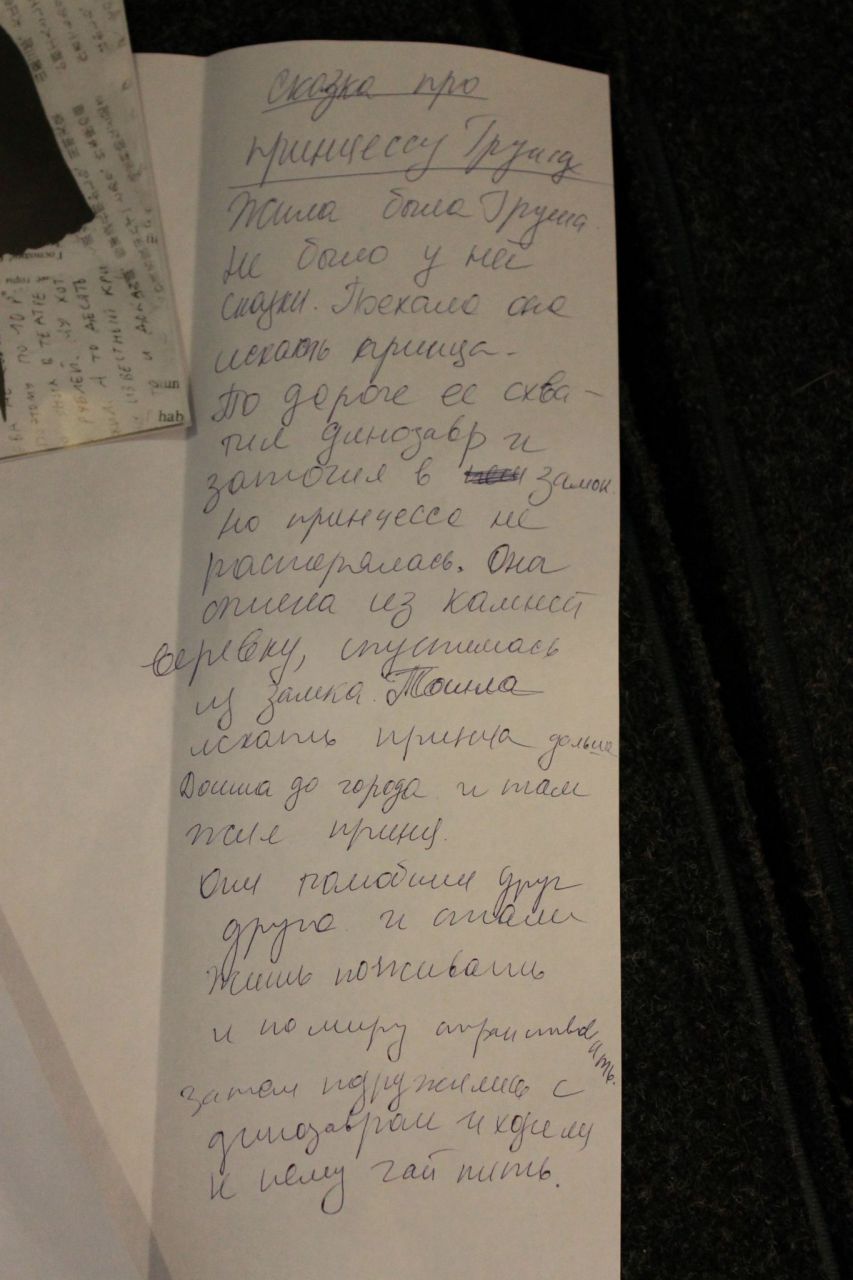 Сказка про
принцессу Грушу
Жила была Груша.
Не было у ней
сказки. Поехала она
искать принца.
По дороге ее схва-
тил динозавр и
заточил в замок.
Но принцесса не
растерялась. Она
сплела из камней
веревку, спустилась
из замка. Пошла
искать принца дальше
Дошла до города и там
жил принц.
Они полюбили друг
друга и стали
жить поживать
и по миру странствовать.
Затем подружились с
динозавром и ходили
к нему чай пить.
по 10 р.
в театре
рублей. Ну хот
а то десять
известный кри
то и
un
hab